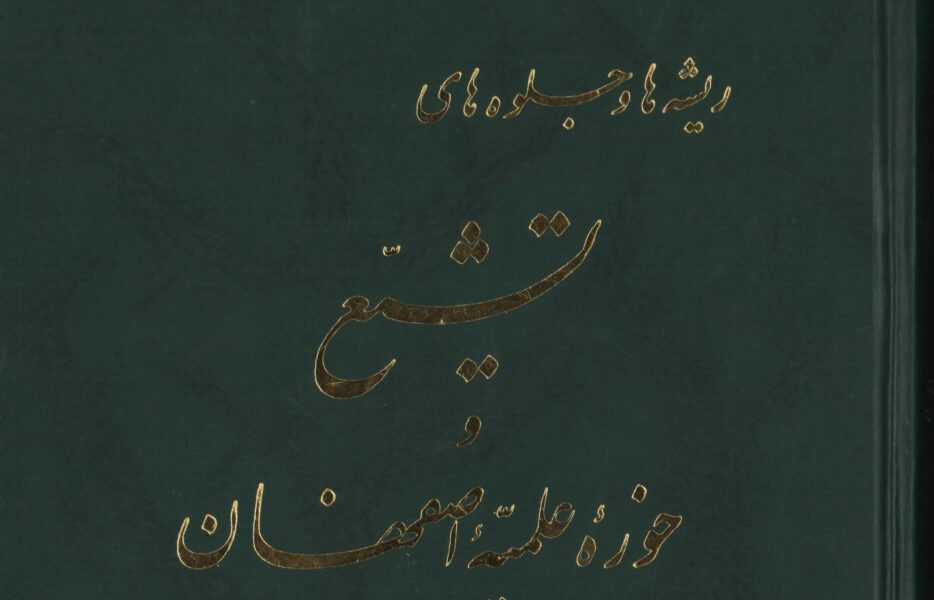 ریشه ها و جلوه های
تشیّع
و
حوزهٔ علمیّهٔ اصفهان